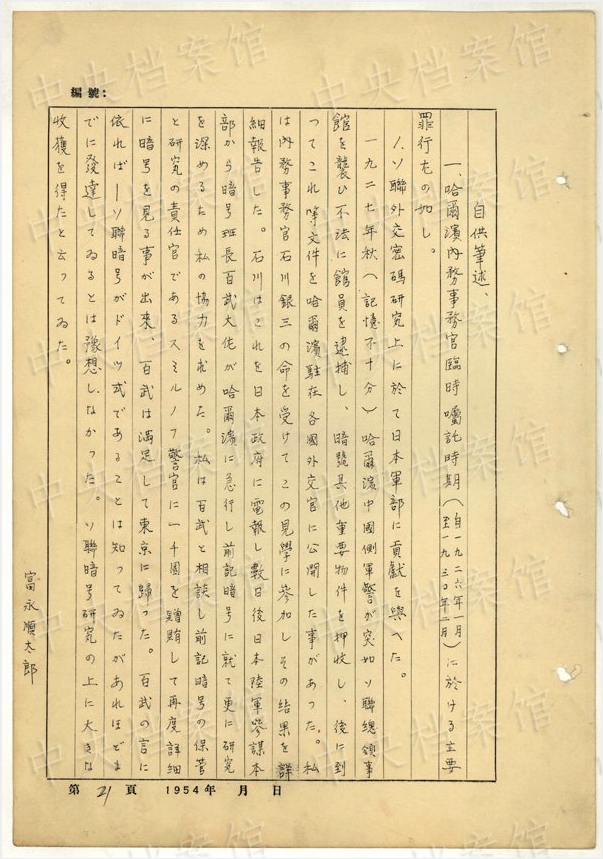 編號：
自供筆述、
一、哈爾濱內務事務官臨時囑託時期（自一九二六年一月至一九三〇年二月）に於ける主要
罪行左の如し。
1. ソ聯外交密碼研究上に於て日本軍部に貢獻を與へた。
一九二七年秋（記憶不十分）哈爾濱中國側軍警が突如ソ聯總領事
館を襲ひ不法に館員を逮捕し、暗號其他重要物件を押收し、後に到
つてこれ等文件を哈爾濱駐在各國外交官に公開した事があつた。私
は內務事務官石川銀三の命を受けてこの見學に參加しその結果を詳
細報告した。石川はこれを日本政府に電報し數日後日本陸軍參謀本
部から暗号班長百武大佐が哈爾濱に急行し前記暗号に就て更に研究
を深めるため私の協力を求めた。私は百武と相談し前記暗号の保管
と研究の責任官であるスミルノフ警官に一千圓を贈賄して再度詳細
に暗号を見る事が出來、百武は滿足して東京に歸つた。百武の言に
依れば—ソ聯暗号がドイツ式であることは知ってゐたがあれほどま
でに發達してゐるとは豫想しなかつた。ソ聯暗号研究の上に大きな
收獲を得たと云ってゐた。
富永順太郎
第 21 頁 1954年 月 日
中央档案馆